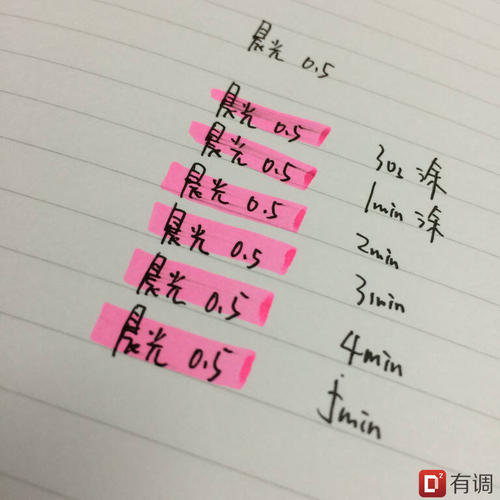 晨光 0.5
晨光 0.5 30s 涂
晨光 0.5 1min 涂
晨光 0.5 2min
晨光 0.5 3min
晨光 0.5 4min
晨光 0.5 5min
D2 有调